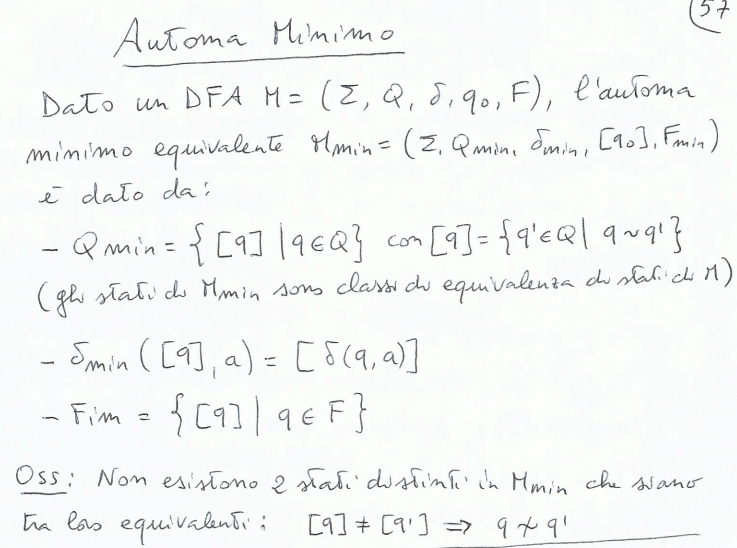 57
Automa Minimo
Dato un DFA M = (Σ, Q, δ, q₀, F), l'automa
minimo equivalente Mmin = (Σ, Qmin, δmin, [q₀], Fmin)
è dato da:
- Qmin = { [q] | q ∈ Q } con [q] = { q' ∈ Q | q ~ q' }
(gli stati di Mmin sono classi di equivalenza di stati di M)
- δmin ([q], a) = [δ(q, a)]
- Fim = { [q] | q ∈ F }
Oss: Non esistono 2 stati distinti in Mmin che siano
tra loro equivalenti: [q] ≠ [q'] ⇒ q ≁ q'